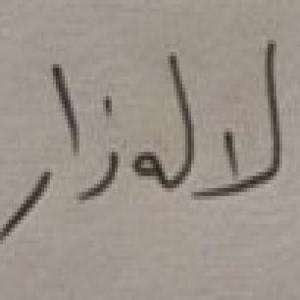 لاله‌زار